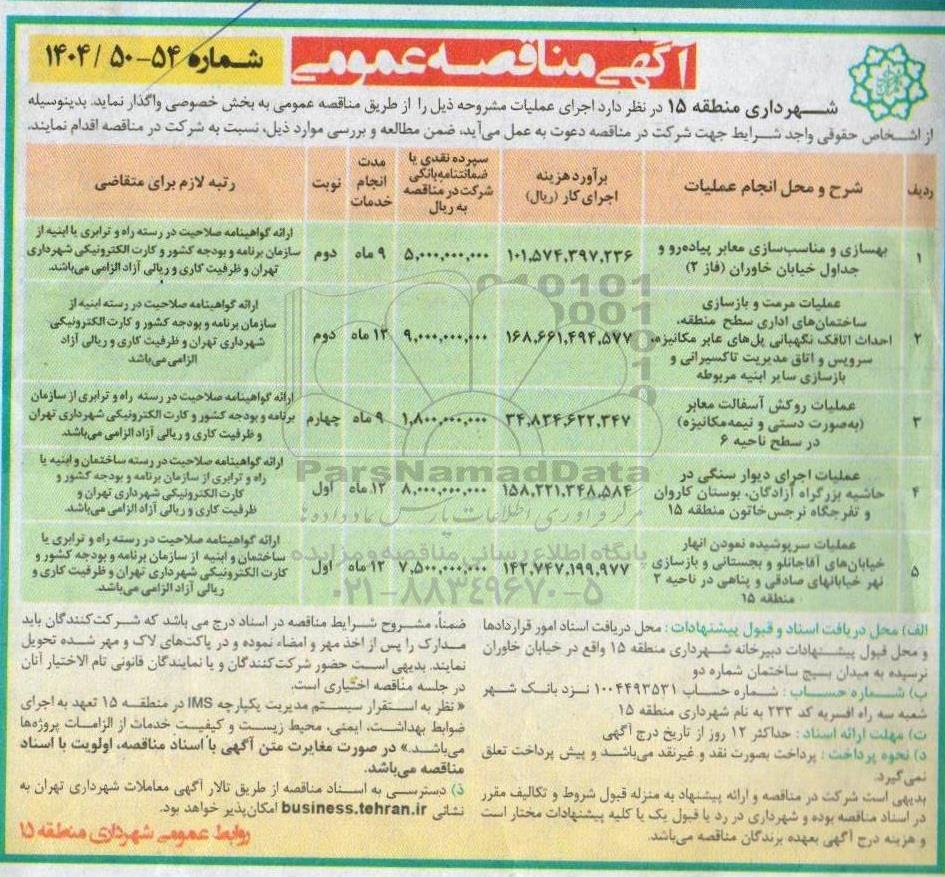 آگهی مناقصه عمومی
شماره ۵۴-۵۰ / ۱۴۰۴
شهرداری منطقه ۱۵ در نظر دارد اجرای عملیات مشروحه ذیل را از طریق مناقصه عمومی به بخش خصوصی واگذار نماید. بدینوسیله
از اشخاص حقوقی واجد شرایط جهت شرکت در مناقصه دعوت به عمل می‌آید، ضمن مطالعه و بررسی موارد ذیل، نسبت به شرکت در مناقصه اقدام نمایند.
ردیف
شرح و محل انجام عملیات
برآورد هزینه
اجرای کار (ریال)
سپرده نقدی یا
ضمانتنامه بانکی
شرکت در مناقصه
به ریال
مدت
انجام
خدمات
نوبت
رتبه لازم برای متقاضی
۱
بهسازی و مناسب‌سازی معابر پیاده‌رو و
جداول خیابان خاوران (فاز ۲)
۱۰۱,۵۷۴,۳۹۷,۲۳۶
۵,۰۰۰,۰۰۰,۰۰۰
۹ ماه
دوم
ارائه گواهینامه صلاحیت در رسته راه و ترابری یا ابنیه از
سازمان برنامه و بودجه کشور و کارت الکترونیکی شهرداری
تهران و ظرفیت کاری و ریالی آزاد الزامی می‌باشد.
۲
عملیات مرمت و بازسازی
ساختمان‌های اداری سطح منطقه،
احداث اتاقک نگهبانی پل‌های عابر مکانیزه،
سرویس و اتاق مدیریت تاکسیرانی و
بازسازی سایر ابنیه مربوطه
۱۶۸,۶۶۱,۴۹۴,۵۷۷
۹,۰۰۰,۰۰۰,۰۰۰
۱۲ ماه
دوم
ارائه گواهینامه صلاحیت در رسته ابنیه از
سازمان برنامه و بودجه کشور و کارت الکترونیکی
شهرداری تهران و ظرفیت کاری و ریالی آزاد
الزامی می‌باشد
۳
عملیات روکش آسفالت معابر
(به‌صورت دستی و نیمه‌مکانیزه)
در سطح ناحیه ۶
۳۴,۸۳۴,۶۲۲,۳۴۷
۱,۸۰۰,۰۰۰,۰۰۰
۹ ماه
چهارم
ارائه گواهینامه صلاحیت در رسته راه و ترابری از سازمان
برنامه و بودجه کشور و کارت الکترونیکی شهرداری تهران
و ظرفیت کاری و ریالی آزاد الزامی می‌باشد.
۴
عملیات اجرای دیوار سنگی در
حاشیه بزرگراه آزادگان، بوستان کاروان
و تفرجگاه نرجس‌خاتون منطقه ۱۵
۱۵۸,۲۲۱,۳۴۸,۵۸۴
۸,۰۰۰,۰۰۰,۰۰۰
۱۲ ماه
اول
ارائه گواهینامه صلاحیت در رسته ساختمان و ابنیه یا
راه و ترابری از سازمان برنامه و بودجه کشور و
کارت الکترونیکی شهرداری تهران و
ظرفیت کاری و ریالی آزاد الزامی می‌باشد.
۵
عملیات سرپوشیده نمودن انهار
خیابان‌های آقاجانلو و بجستانی و بازسازی
نهر خیابانهای صادقی و پناهی در ناحیه ۲
منطقه ۱۵
۱۴۲,۷۴۷,۱۹۹,۹۷۷
۷,۵۰۰,۰۰۰,۰۰۰
۱۲ ماه
اول
ارائه گواهینامه صلاحیت در رسته راه و ترابری یا
ساختمان و ابنیه از سازمان برنامه و بودجه کشور و
کارت الکترونیکی شهرداری تهران و ظرفیت کاری و
ریالی آزاد الزامی می‌باشد.
ParsNamadData
مرکز فرآوری اطلاعات پارس نماد داده‌ها
پایگاه اطلاع رسانی مناقصه و مزایده
۰۲۱-۸۸۳۴۹۶۷۰-۵
الف) محل دریافت اسناد و قبول پیشنهادات : محل دریافت اسناد امور قراردادها
و محل قبول پیشنهادات دبیرخانه شهرداری منطقه ۱۵ واقع در خیابان خاوران
نرسیده به میدان بسیج ساختمان شماره دو
ب) شماره حساب : شماره حساب ۱۰۰۴۴۹۳۵۳۱ نزد بانک شهر
شعبه سه راه افسریه کد ۲۳۳ به نام شهرداری منطقه ۱۵
ت) مهلت ارائه اسناد : حداکثر ۱۲ روز از تاریخ درج آگهی
د) نحوه پرداخت : پرداخت بصورت نقد و غیرنقد می‌باشد و پیش پرداخت تعلق
نمی‌گیرد.
بدیهی است شرکت در مناقصه و ارائه پیشنهاد به منزله قبول شروط و تکالیف مقرر
در اسناد مناقصه بوده و شهرداری در رد یا قبول یک یا کلیه پیشنهادات مختار است
و هزینه درج آگهی بعهده برندگان مناقصه می‌باشد.
ضمناً، مشروح شرایط مناقصه در اسناد درج می باشد که شرکت‌کنندگان باید
مدارک را پس از اخذ مهر و امضاء نموده و در پاکت‌های لاک و مهر شده تحویل
نمایند. بدیهی است حضور شرکت‌کنندگان و یا نمایندگان قانونی تام الاختیار آنان
در جلسه مناقصه اختیاری است.
« نظر به استقرار سیستم مدیریت یکپارچه IMS در منطقه ۱۵ تعهد به اجرای
ضوابط بهداشت، ایمنی، محیط زیست و کیفیت خدمات از الزامات پروژه‌ها
می‌باشد.» در صورت مغایرت متن آگهی با اسناد مناقصه، اولویت با اسناد
مناقصه می‌باشد.
ذ) دسترسی به اسناد مناقصه از طریق تالار آگهی معاملات شهرداری تهران به
نشانی business.tehran.ir امکان‌پذیر خواهد بود.
روابط عمومی شهرداری منطقه ۱۵